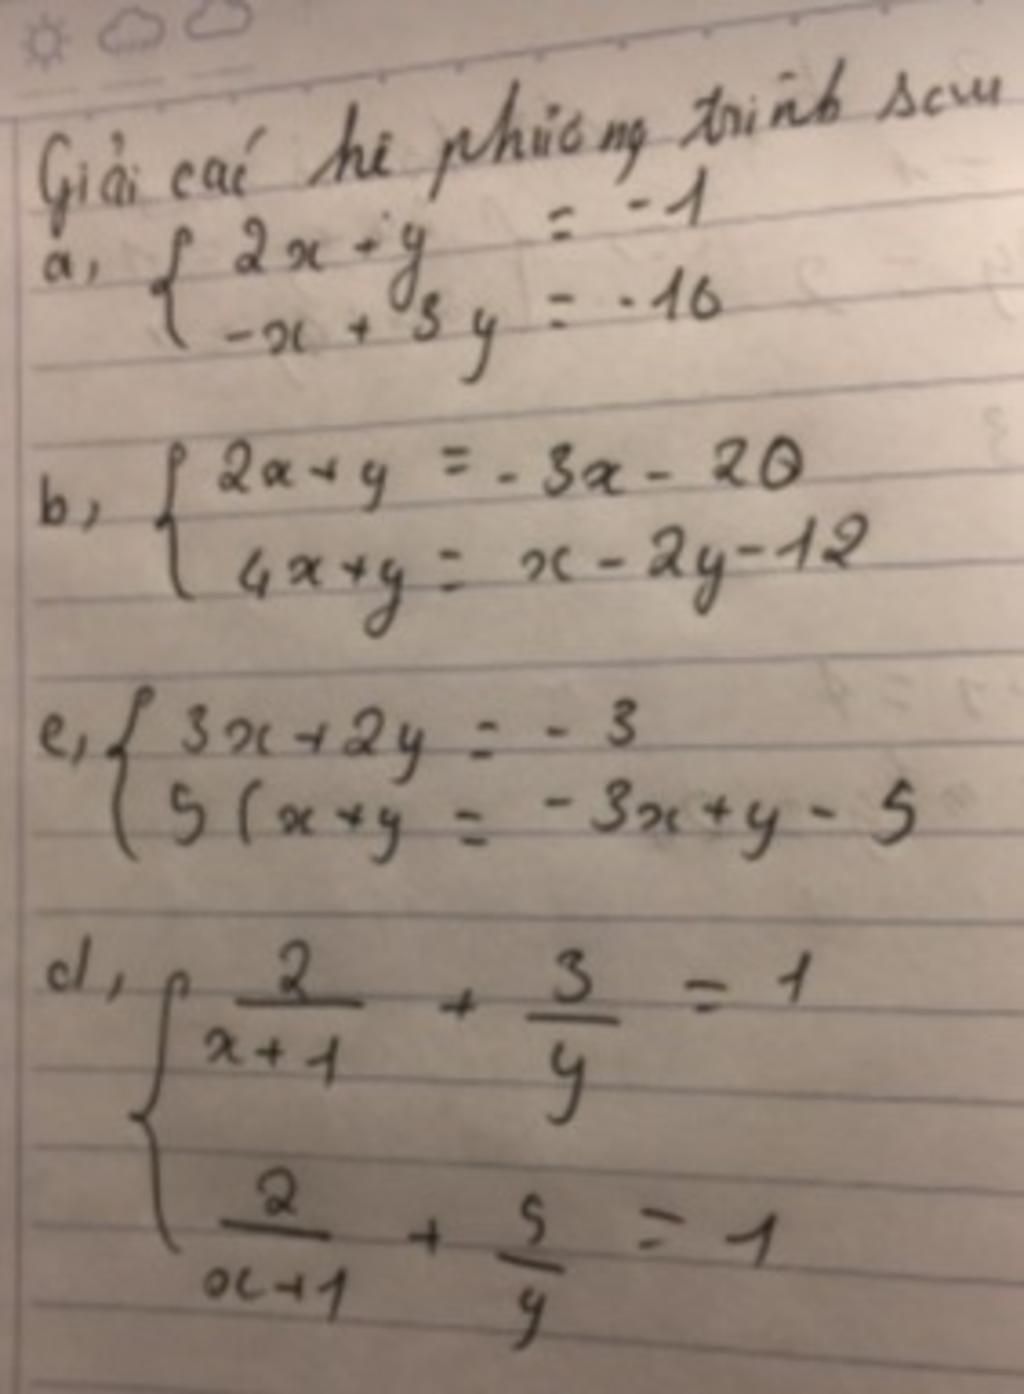 Giải các hệ phương trình sau
a, { 2x + y = -1
-x + 3y = -10
b, { 2x + y = -3x - 20
4x + y = x - 2y - 12
c, { 3x + 2y = -3
5(x + y = -3x + y - 5
d, { 2/(x+1) + 3/y = 1
2/(x+1) + 5/y = 1